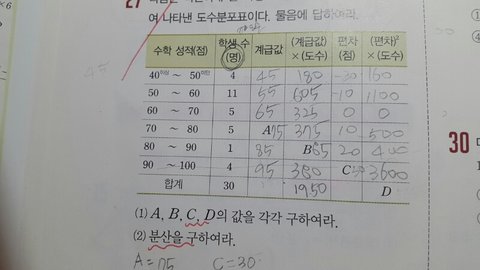 27
여 나타낸 도수분포표이다. 물음에 답하여라.
수학 성적(점) 학생 수(명) 계급값 (계급값)×(도수) 편차(점) (편차)²×(도수)
40이상 ~ 50미만 4 45 180 -20 160
50 ~ 60 11 55 605 -10 1100
60 ~ 70 5 65 325 0 0
70 ~ 80 5 A75 375 10 500
80 ~ 90 1 85 B85 20 400
90 ~ 100 4 95 380 C30 3600
합계 30 1950 D
(1) A, B, C, D의 값을 각각 구하여라.
(2) 분산을 구하여라.
A=75 C=30
30